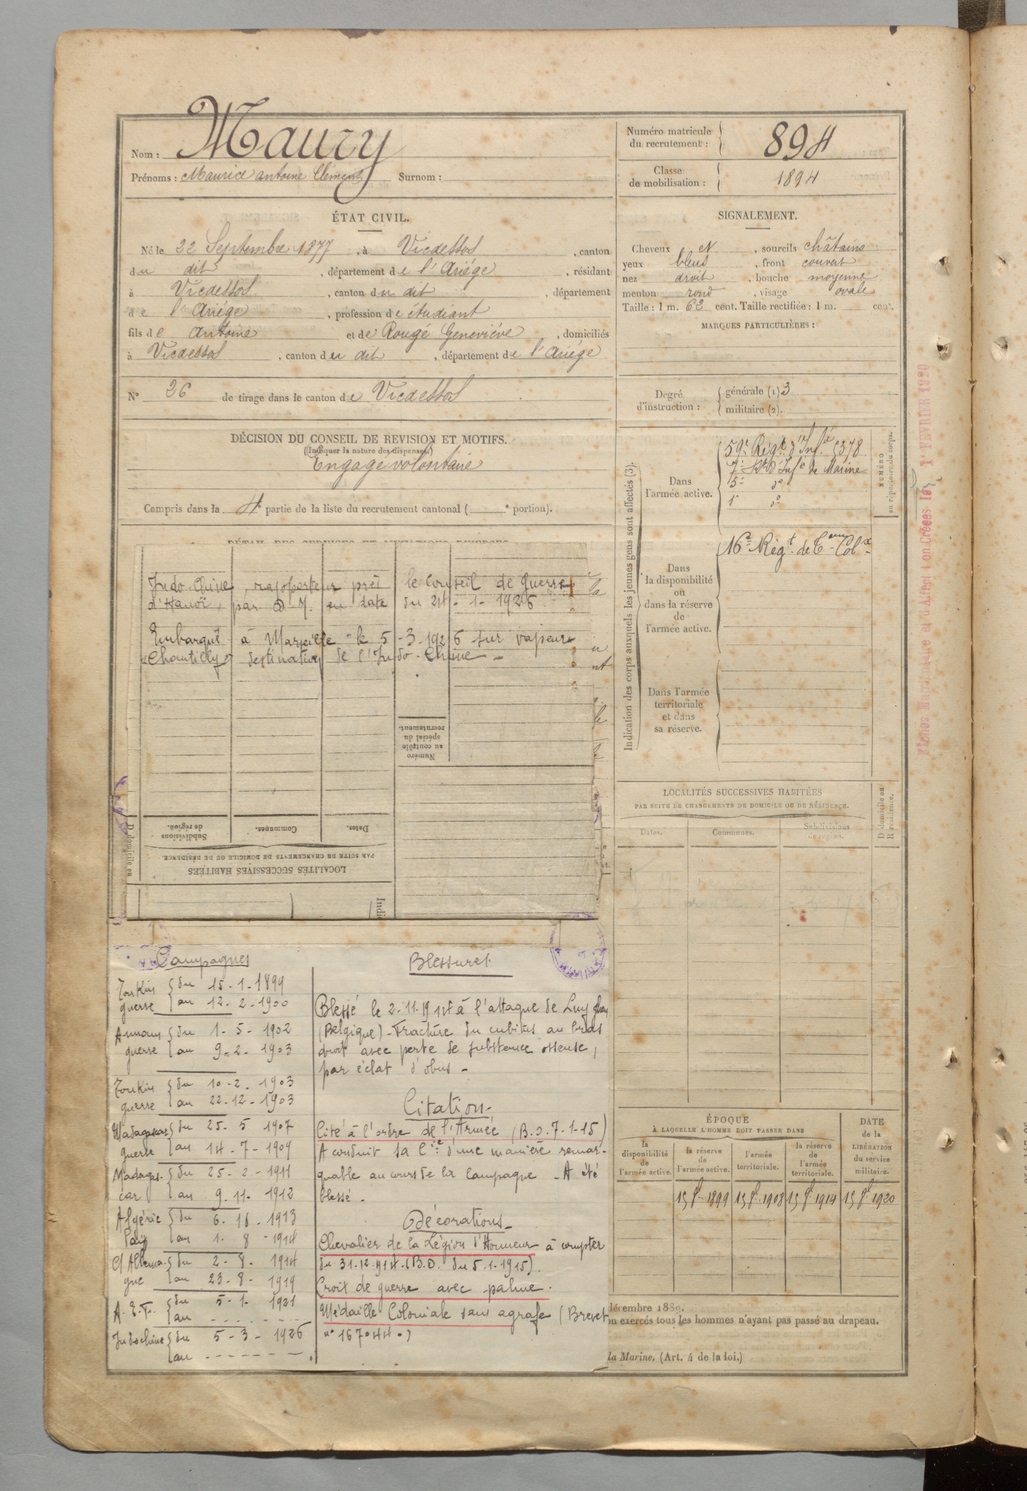 Nom : Maury
Prénoms : Maurice antoine Clément Surnom :
Numéro matricule du recrutement : 894
Classe de mobilisation : 1894
ÉTAT CIVIL.
Né le 22 Septembre 1877, à Vicdessos, canton
du dit, département de l'Ariége, résidant
à Vicdessos, canton du dit, département
de l'Ariége, profession d'etudiant
fils de Antoine et de Rougé Geneviève, domiciliés
à Vicdessos, canton du dit, département de l'Ariége
N° 26 de tirage dans le canton de Vicdessos
SIGNALEMENT.
Cheveux et, sourcils châtains
yeux bleus, front couvert
nez droit, bouche moyenne
menton rond, visage ovale
Taille : 1 m. 62 cent. Taille rectifiée : 1 m. cent.
MARQUES PARTICULIÈRES :
Degré d'instruction : générale (1) 3
militaire (2).
DÉCISION DU CONSEIL DE REVISION ET MOTIFS.
(Indiquer la nature des dispenses)
Engagé volontaire
Compris dans la 4 partie de la liste du recrutement cantonal ( e portion).
Indication des corps auxquels les jeunes gens sont affectés (3).
Dans l'armée active.
59e Régt d'Infie 5378
7e Rt d'Infie de Marine
Dans
la disponibilité
ou
dans la réserve
de
l'armée active.
16e Régt de Col
Dans l'armée
territoriale
et dans
sa réserve.
Indo-Chine, rapporteur près le Conseil de Guerre
d'Hanoï, par D. M. en date du 21-1-1926
Embarqué à Marseille le 5-3-1926 sur vapeur
Chantilly destination de l'Indo-Chine -
Numéro
au contrôle
spécial du
recrutement.
Subdivisions de région. Communes. Dates.
LOCALITÉS SUCCESSIVES HABITÉES
PAR SUITE DE CHANGEMENTS DE DOMICILE OU DE RÉSIDENCE.
LOCALITÉS SUCCESSIVES HABITÉES
PAR SUITE DE CHANGEMENTS DE DOMICILE OU DE RÉSIDENCE.
Dates. Communes. Subdivisions de région. D domicile ou R résidence.
Campagnes
Tonkin guerre du 15-1-1899
au 12-2-1900
Annam guerre du 1-5-1902
au 9-2-1903
Tonkin guerre du 10-2-1903
au 22-12-1903
Madagascar guerre du 25-5 1907
au 14-7-1909
Madagascar du 25-2-1911
au 9-11-1912
Algérie du 6-11-1913
au 1-8-1914
C/ Allemagne du 2-8-1914
au 23-8-1919
A.E.F. du 5-1-1921
au
Indochine du 5-3-1926
au
Blessures
Blessé le 2-11-1914 à l'attaque de
(Belgique) - Fracture du cubitus au bras
droit avec perte de substance osseuse,
par éclat d'obus -
Citation.
Cité à l'ordre de l'Armée (B.O. 7-1-15)
A conduit sa Cie d'une manière remar-
quable au cours de la campagne - A été
blessé.
Décorations
Chevalier de la Légion d'Honneur à compter
du 31-12-914 - (B.O. du 5-1-1915).
Croix de guerre avec palme.
Médaille Coloniale sans agrafe (Brevet
ÉPOQUE
À LAQUELLE L'HOMME DOIT PASSER DANS
la disponibilité de l'armée active.
la réserve de l'armée active.
l'armée territoriale.
la réserve de l'armée territoriale.
DATE de la LIBÉRATION du service militaire.
décembre 1889.
exercés tous les hommes n'ayant pas passé au drapeau.
la Marine. (Art. 4 de la loi.)